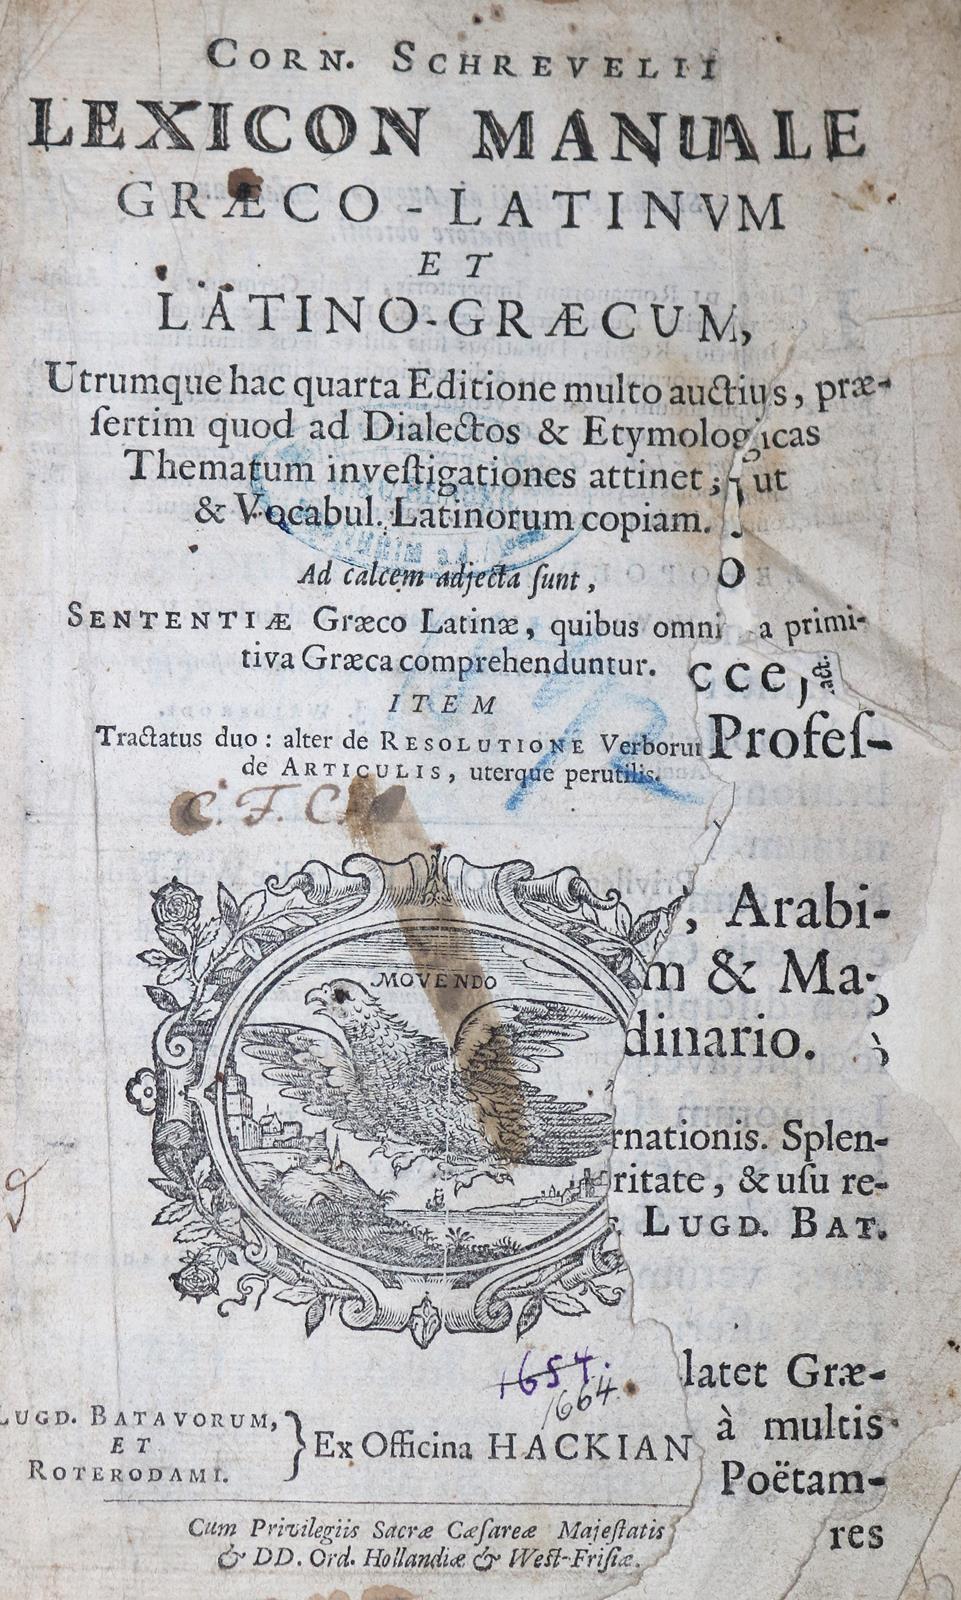 CORN. SCHREVELII
LEXICON MANUALE
GRÆCO-LATINVM
ET
LATINO-GRÆCUM,
Utrumque hac quarta Editione multo auctius, præ-
sertim quod ad Dialectos & Etymologicas
Thematum investigationes attinet; ut
& Vocabul. Latinorum copiam.
Ad calcem adjecta sunt,
SENTENTIÆ Græco Latinæ, quibus omni a primi-
tiva Græca comprehenduntur.
ITEM
Tractatus duo: alter de RESOLUTIONE Verboru
de ARTICULIS, uterque perutilis.
C. F. C.
MOVENDO
1654.
1664.
LUGD. BATAVORUM,
ET
ROTERODAMI.
Ex Officina HACKIAN
Cum Privilegiis Sacræ Cæsareæ Majestatis
& DD. Ord. Hollandiæ & West-Frisiæ.
O
cce,
act.
Profes-
, Arabi-
m & Ma-
dinario.
rnationis. Splen-
ritate, & usu re-
LUGD. BAT.
latet Græ-
à multis
Poëtam-
res